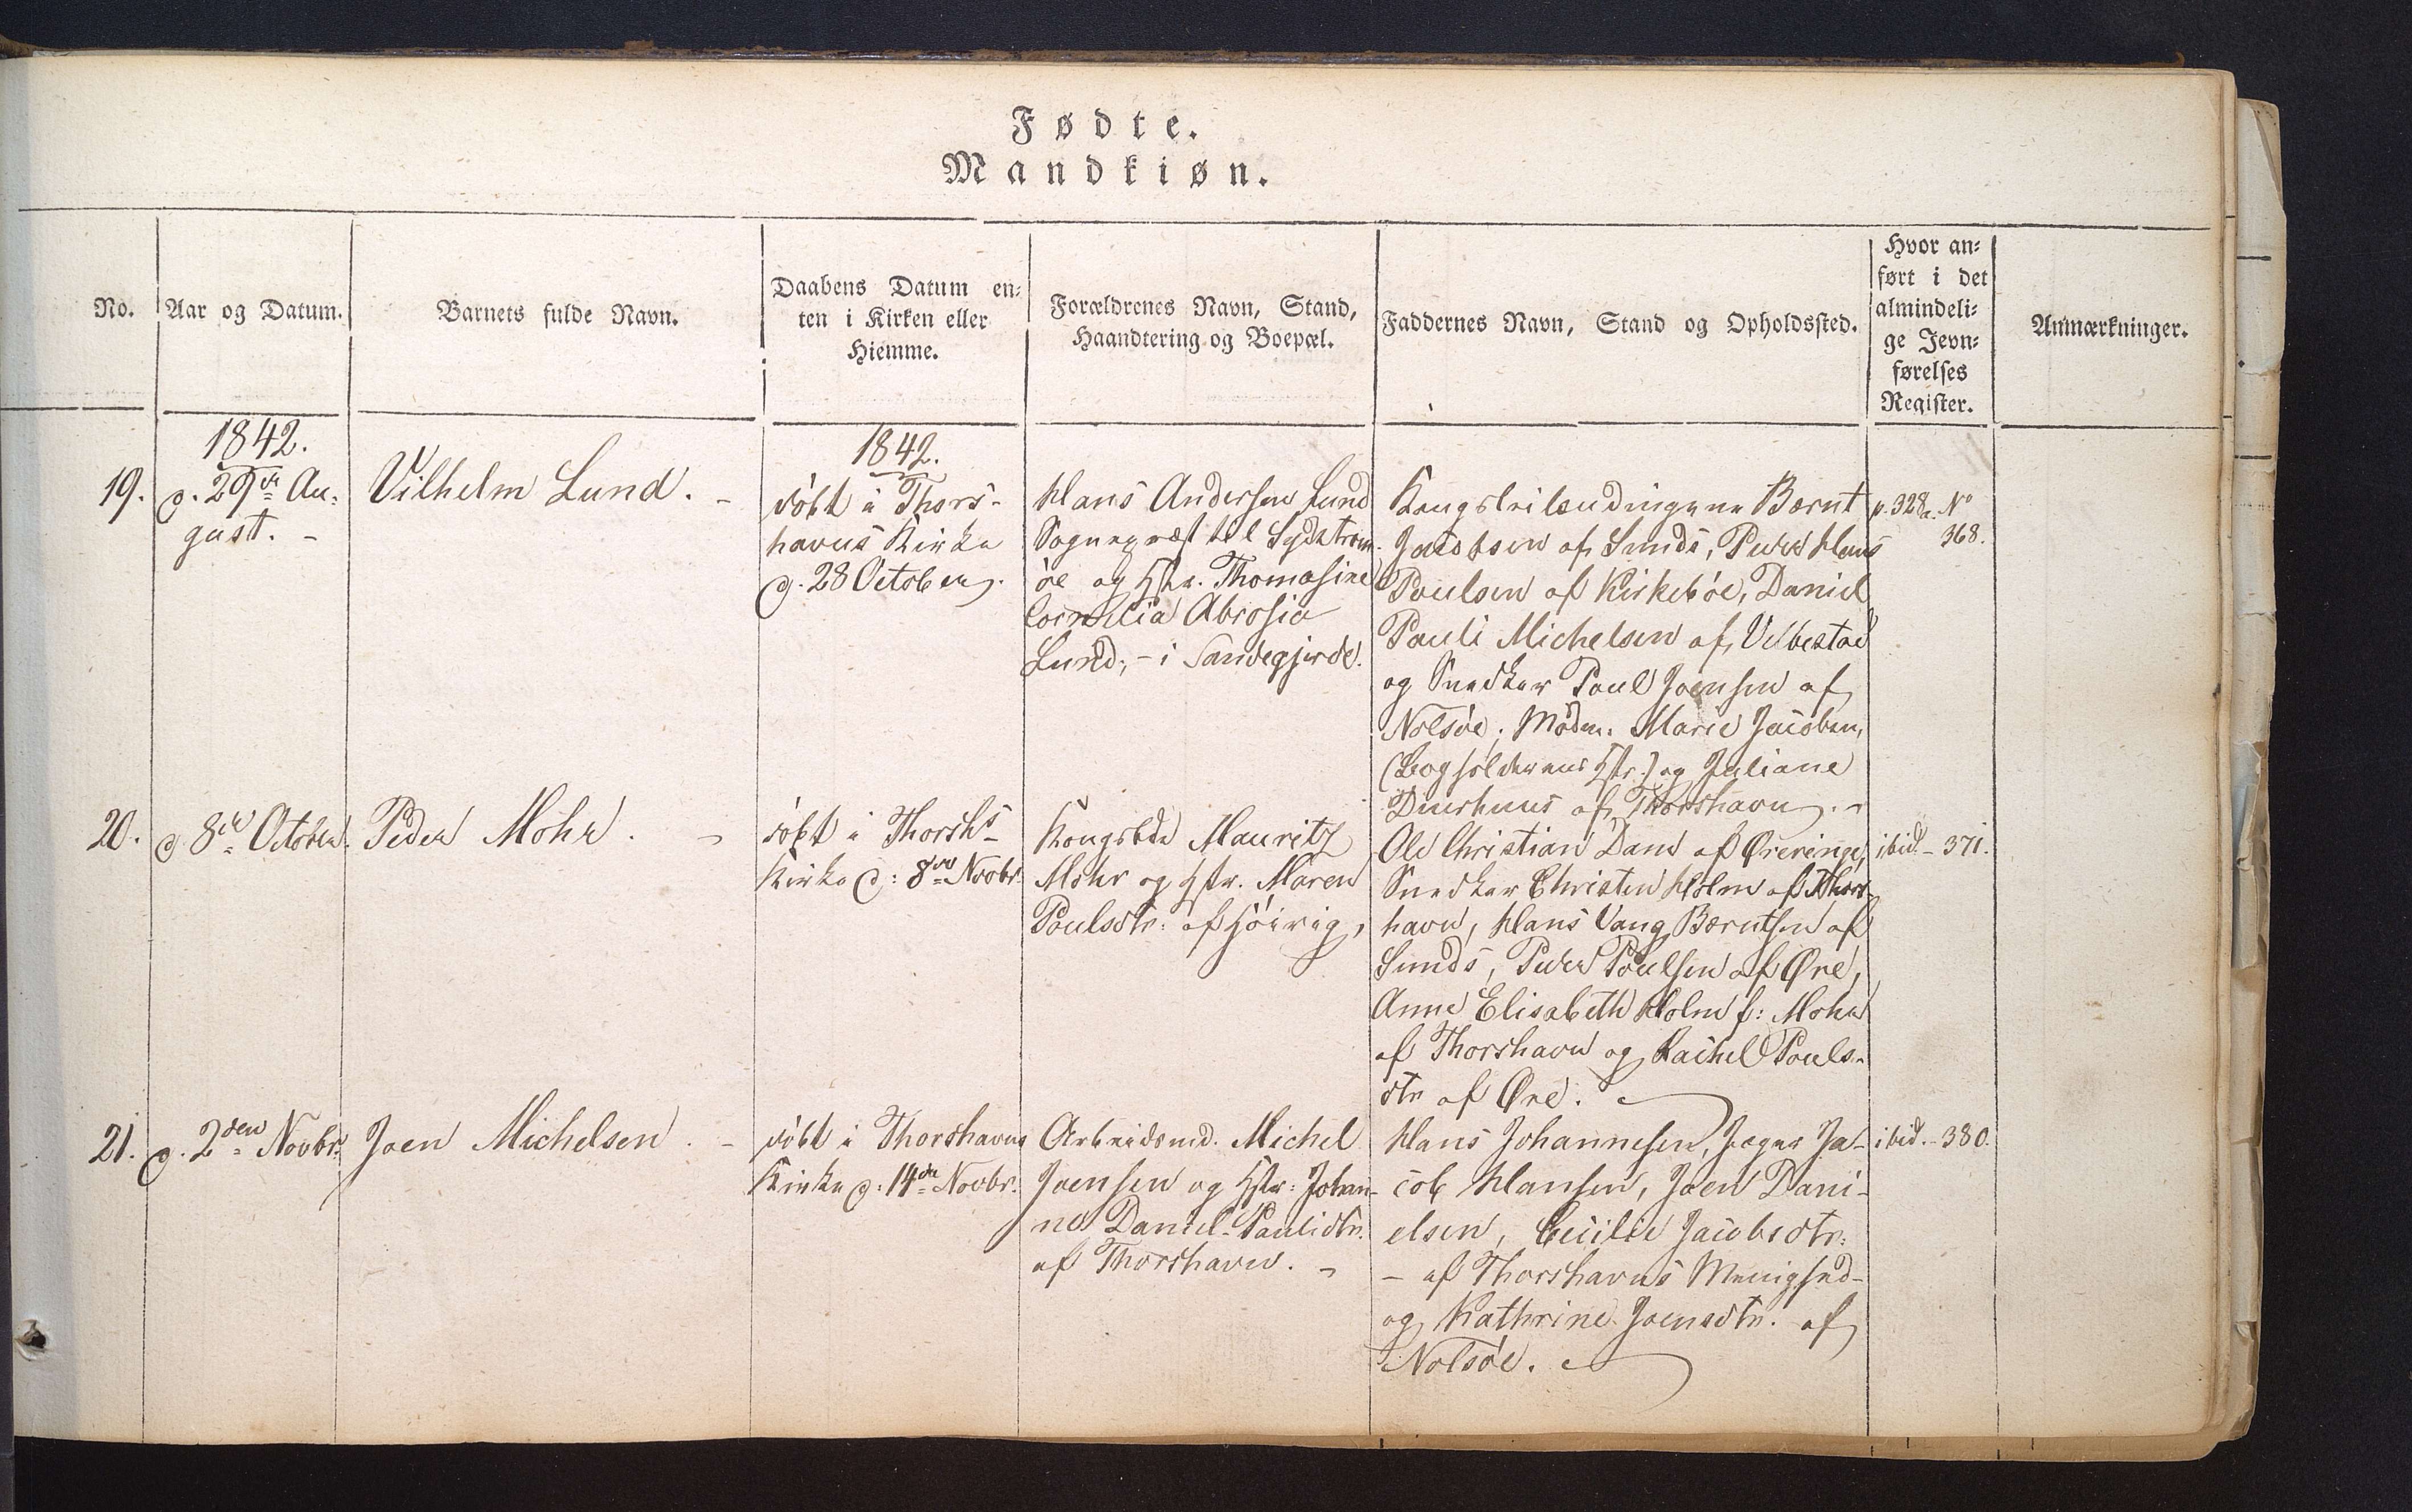 Fødte.
Mandkiøn.
No.
Aar og Datum.
Barnets fulde Navn.
Daabens Datum en-
ten i Kirken eller
Hiemme.
Forældrenes Navn, Stand,
Haandtering og Boepæl.
Faddernes Navn, Stand og Opholdssted.
Hvor an-
ført i det
almindeli-
ge Jevn-
førelses
Register.
Anmærkninger.
19.
1842.
d. 29de Au-
gust. -
Vilhelm Lund. -
1842.
döbt i Thors-
havns Kirke
d. 28 October.
Hans Andersen Lund
Sognepræst til Sydstrom-
öe og Hstr. Thomasine
Cornelia Abrosia
Lund, - i Sandegjerde.
Kongsleilændingene Bærnt
Jacobsen af Sunds, Peder Hans
Poulsen af Kirkeböe, Daniel
Pauli Michelsen af Velbestad
og Snedker Poul Joensen af
Nolsöe; Mödm. Marie Jacobsen,
(Bogholderens Hstr.) og Juliane
Duurhuus af Thorshavn. -
p. 328a. No
368.
20.
d 8de October.
Peder Mohr. -
döbt i Thorshs
Kirke d: 8de Novbr.
Kongsbde Mauritz
Mohr og Hstr. Maren
Poulsdtr: af Höivig,
Ole Christian Dam af Ørereinge,
Snedker Christen Holm af Thors-
havn, Hans Vang Bærntsen af
Sunds, Peder Poulsen af Øre,
Anne Elisabeth Holm f: Mohr
af Thorshavn og Rachel Pouls-
dtr af Øre.
ibid - 371.
21.
d. 2den Novbr.
Joen Michelsen. -
döbt i Thorshavns
Kirke d: 14de Novbr.
Arbeidsmd. Michel
Joensen og Hstr: Johan-
ne Daniel-Paulidtr.
af Thorshavn. -
Hans Johannesen, Jæger Ja-
cob Hansen, Joen Dani-
elsen, Cecilie Jacobsdtr:
- af Thorshavns Menighed -
og Kathrine Joensdtr. af
Nolsöe.
ibid. - 380.